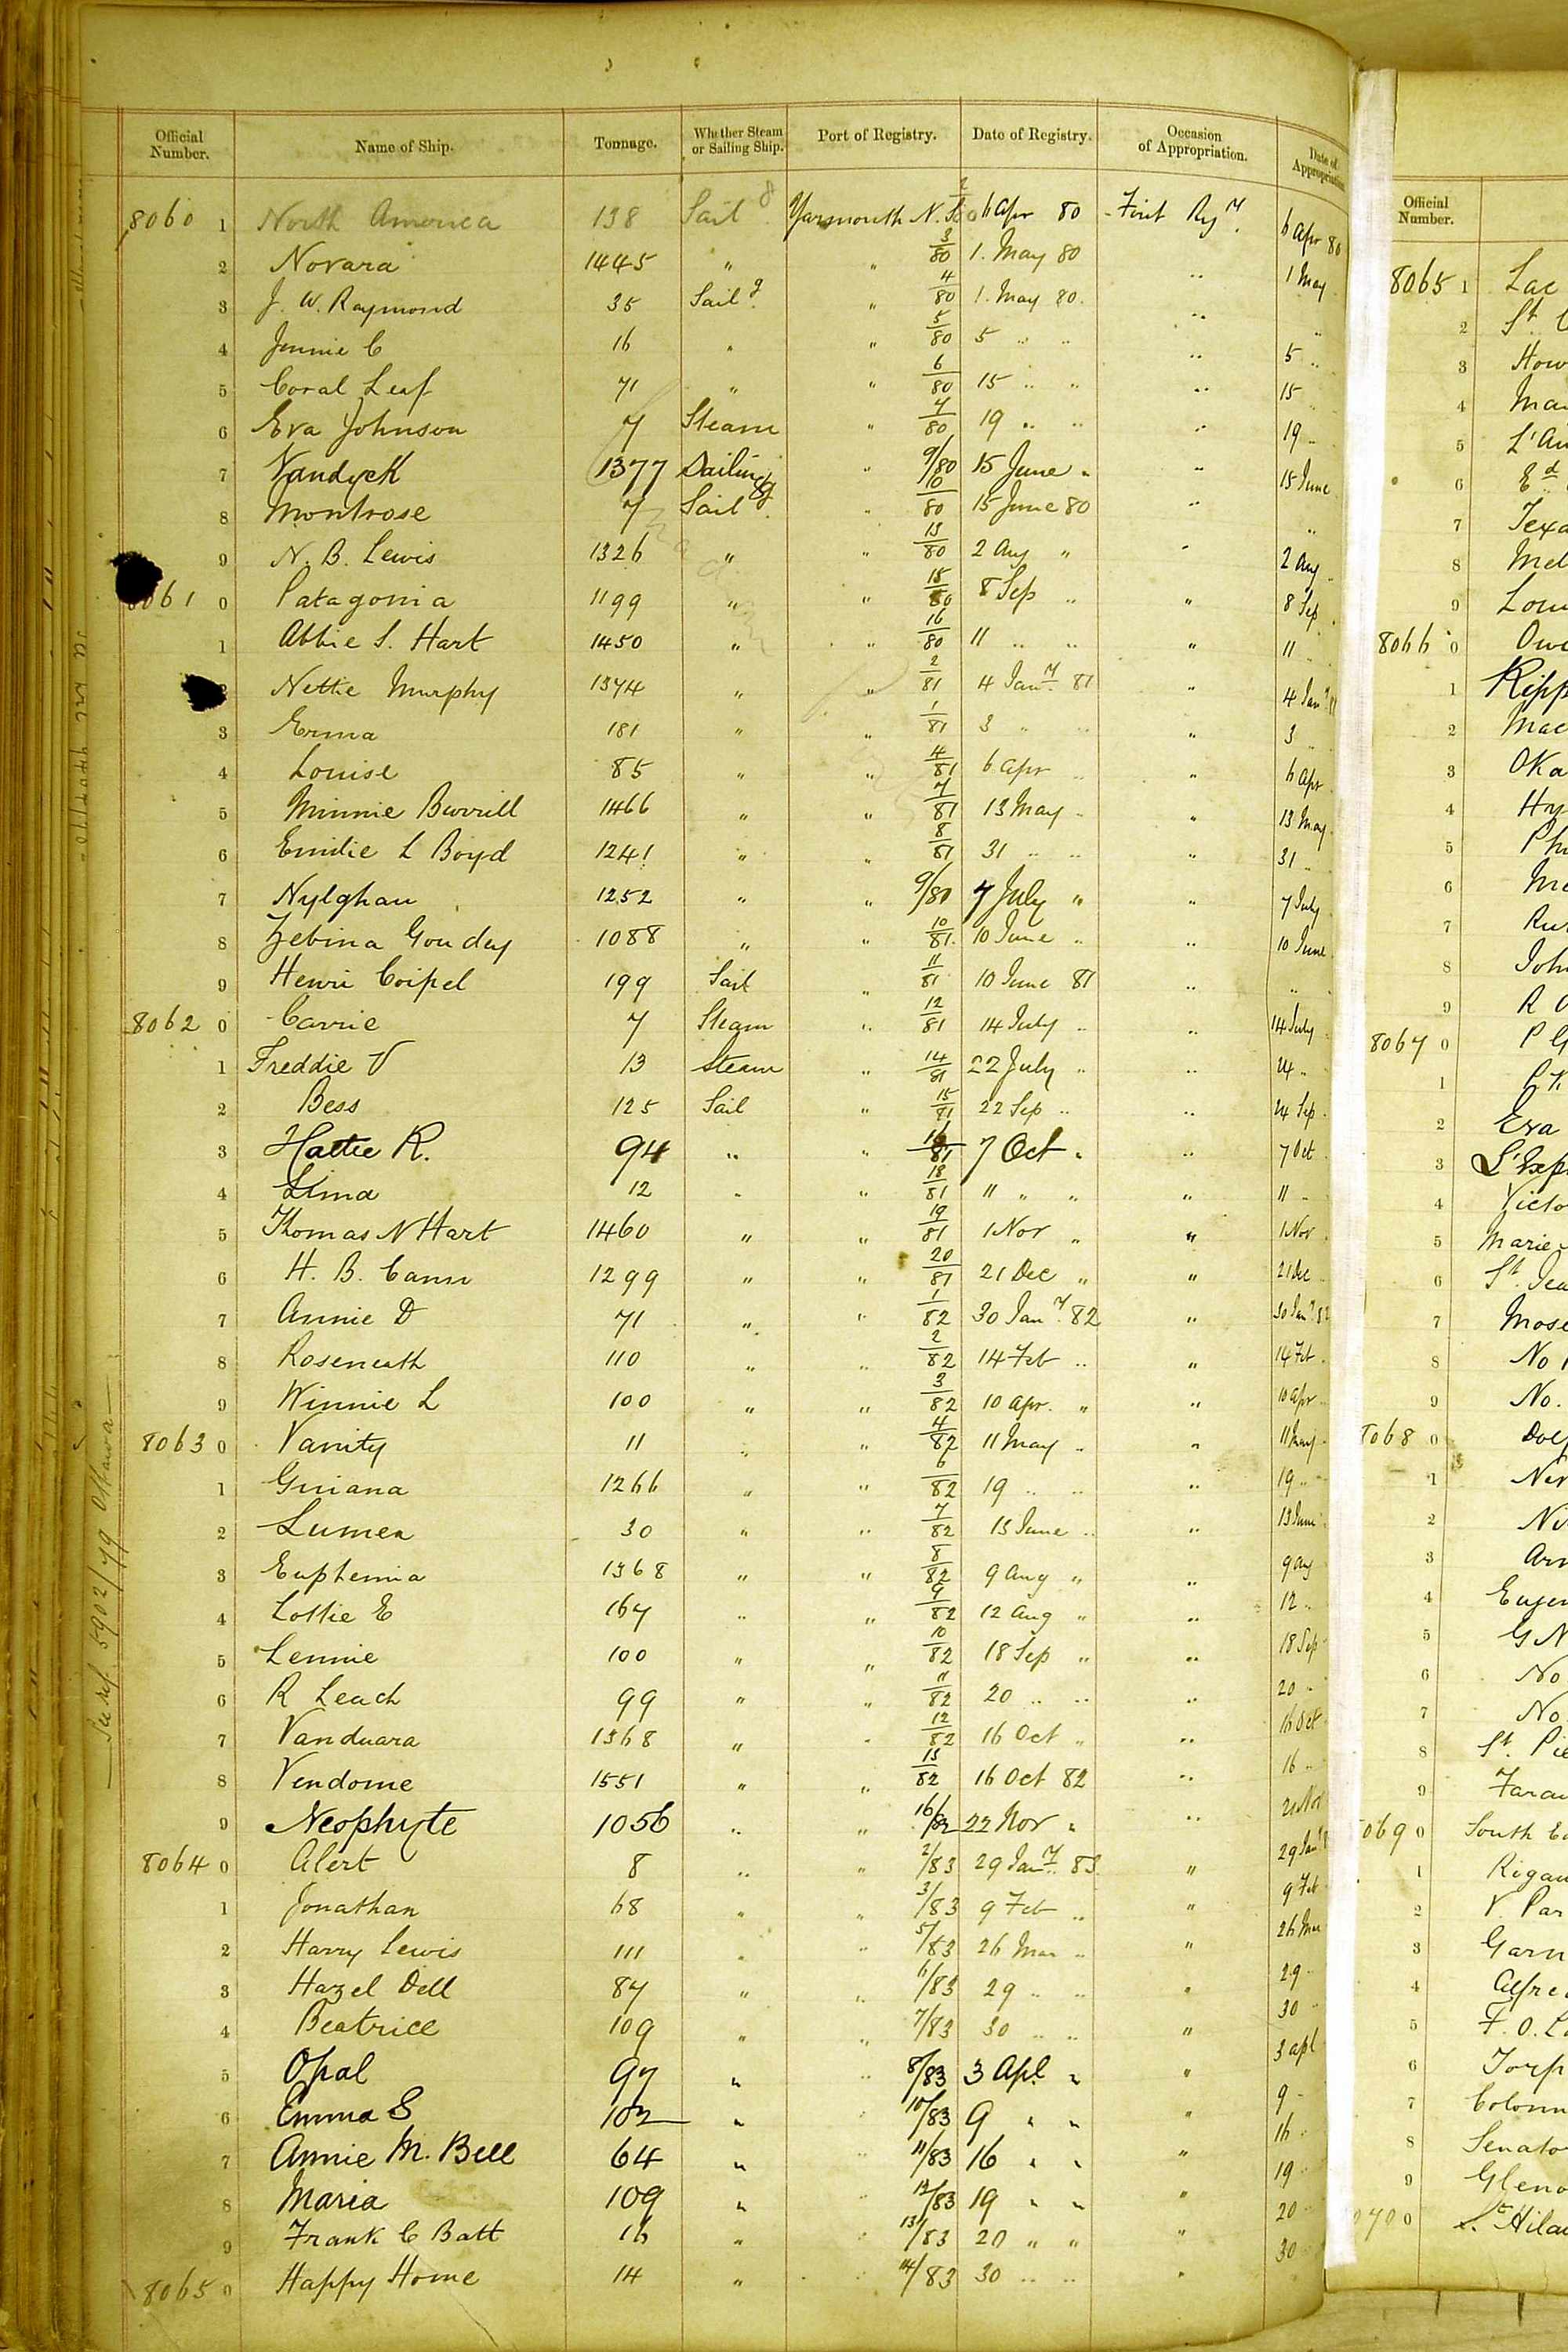 Official Number. Name of Ship. Tonnage. Whether Steam or Sailing Ship. Port of Registry. Date of Registry. Occasion of Appropriation. Date of Appropriation
8060 1 North America 138 Sail g Yarmouth N.S. 2/80 6 Apr 80 First Rgy 6 Apr 80
2 Novara 1445 " " 3/80 1. May 80 " 1 May
3 J. W. Raymond 35 Sail g " 4/80 1. May 80. " "
4 Jennie C 16 " " 5/80 5 " " " 5 "
5 Coral Leaf 71 " " 6/80 15 " " " 15
6 Eva Johnson 7 Steam " 7/80 19 " " " 19 "
7 Vandyck 1377 Sailing " 9/80 15 June " " 15 June
8 Montrose 7 Sail g " 10/80 15 June 80 " "
9 N. B. Lewis 1326 " " 13/80 2 Aug " " 2 Aug "
8061 0 Patagonia 1199 " " 15/80 8 Sep " " 8 Sep
1 Abbie S. Hart 1450 " " 16/80 11 " " " 11 "
Nettie Murphy 1374 " " 2/81 4 Jany 81 " 4 Jany 81
3 Erma 181 " " 1/81 3 " " " 3 "
4 Louise 85 " " 4/81 6 Apr " " 6 Apr
5 Minnie Burrill 1466 " " 7/81 13 May " " 13 May
6 Emilie L Boyd 1241 " " 8/81 31 " " " 31 "
7 Nylghau 1252 " " 9/80 7 July " " 7 July
8 Zebina Goudey 1088 " " 10/81 10 June " " 10 June
9 Henri Coipel 199 Sail " 11/81 10 June 81 " "
8062 0 Carrie 7 Steam " 12/81 14 July " " 14 July
1 Freddie V 13 Steam " 14/81 22 July " " 24 "
2 Bess 125 Sail " 15/81 22 Sep " " 24 Sep
3 Hattie R. 94 " " 16/81 7 Oct " " 7 Oct
4 12 " " 18/81 11 " " " 11 "
5 Thomas N Hart 1460 " " 19/81 1 Nov " " 1 Nov
6 H. B. Cann 1299 " " 20/81 21 Dec " " 21 Dec
7 Annie D 71 " " 1/82 30 Jany. 82 " 30 Jany 82
8 Roseneath 110 " " 2/82 14 Feb " " 14 Feb
9 Winnie L 100 " " 3/82 10 Apr. " " 10 Apr
8063 0 Vanity 11 " " 4/82 11 May " " 11 May
1 Guiana 1266 " " 6/82 19 " " " 19 "
2 Lumen 30 " " 7/82 13 June " " 13 June
3 Euphemia 1368 " " 8/82 9 Aug " " 9 Aug
4 Lottie E 167 " " 9/82 12 Aug " " 12 "
5 Lennie 100 " " 10/82 18 Sep " " 18 Sep
6 R Leach 99 " " 11/82 20 " " " 20 "
7 Vanduara 1368 " " 12/82 16 Oct " " 16 Oct
8 Vendome 1551 " " 13/82 16 Oct 82 " 16 "
9 Neophyte 1056 " " 16/82 22 Nov " "
8064 0 Alert 8 " " 2/83 29 Jany. 83 " 29 Jany
1 Jonathan 68 " " 3/83 9 Feb " " 9 Feb
2 Harry Lewis 111 " " 5/83 26 Mar " " 26 Mar
3 Hazel Dell 87 " " 6/83 29 " " " 29 "
4 Beatrice 109 " " 7/83 30 " " " 30 "
5 Opal 97 " " 8/83 3 Apl " " 3 apl
6 Emma S 102 " " 10/83 9 " " " 9 "
7 Annie M. Bell 64 " " 11/83 16 " " " 16 "
8 Maria 109 " " 12/83 19 " " " 19 "
9 Frank C Batt 16 " " 13/83 20 " " " 20 "
8065 0 Happy Home 14 " " 14/83 30 " " " 30 "
5902/79 Ottawa
Official Number.
8065 1 Lac
2 St.
3 How
4 Ma
5 L'Au
6 Ed
7 Texa
8 Mel
9 Lou
8066 0 Owe
1 Ripp
2 Mac
3 Oka
4 Hy
5 Ph
6 Me
7 Ru
8 John
9 R
8067 0 P
1
2 Eva
3
4 Victo
5 Marie
6 St. Jea
7 Mose
8 No 1
9 No.
8068 0 Dol
1 Ner
2 Ni
3 Ar
4 Eugen
5 G N
6 No
7 No
8 St. Pie
9 Farau
8069 0 South Ea
1 Rigau
2 V. Par
3 Garn
4 Alfre
5 F. O. L
6 Torp
7 Colonn
8 Senato
9 Gleno
8070 0 St Hila